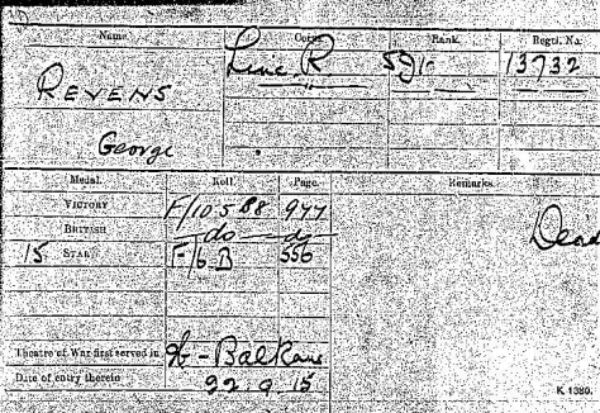 Name. Corps. Rank. Regtl. No.
REVENS Linc. R Sgt 13732
George
Medal. Roll. Page. Remarks.
VICTORY F/105 B8 977
BRITISH do do Dead
15 STAR F/6 B 556
Theatre of War first served in - Balkans
Date of entry therein 22.9.15
K 1380.